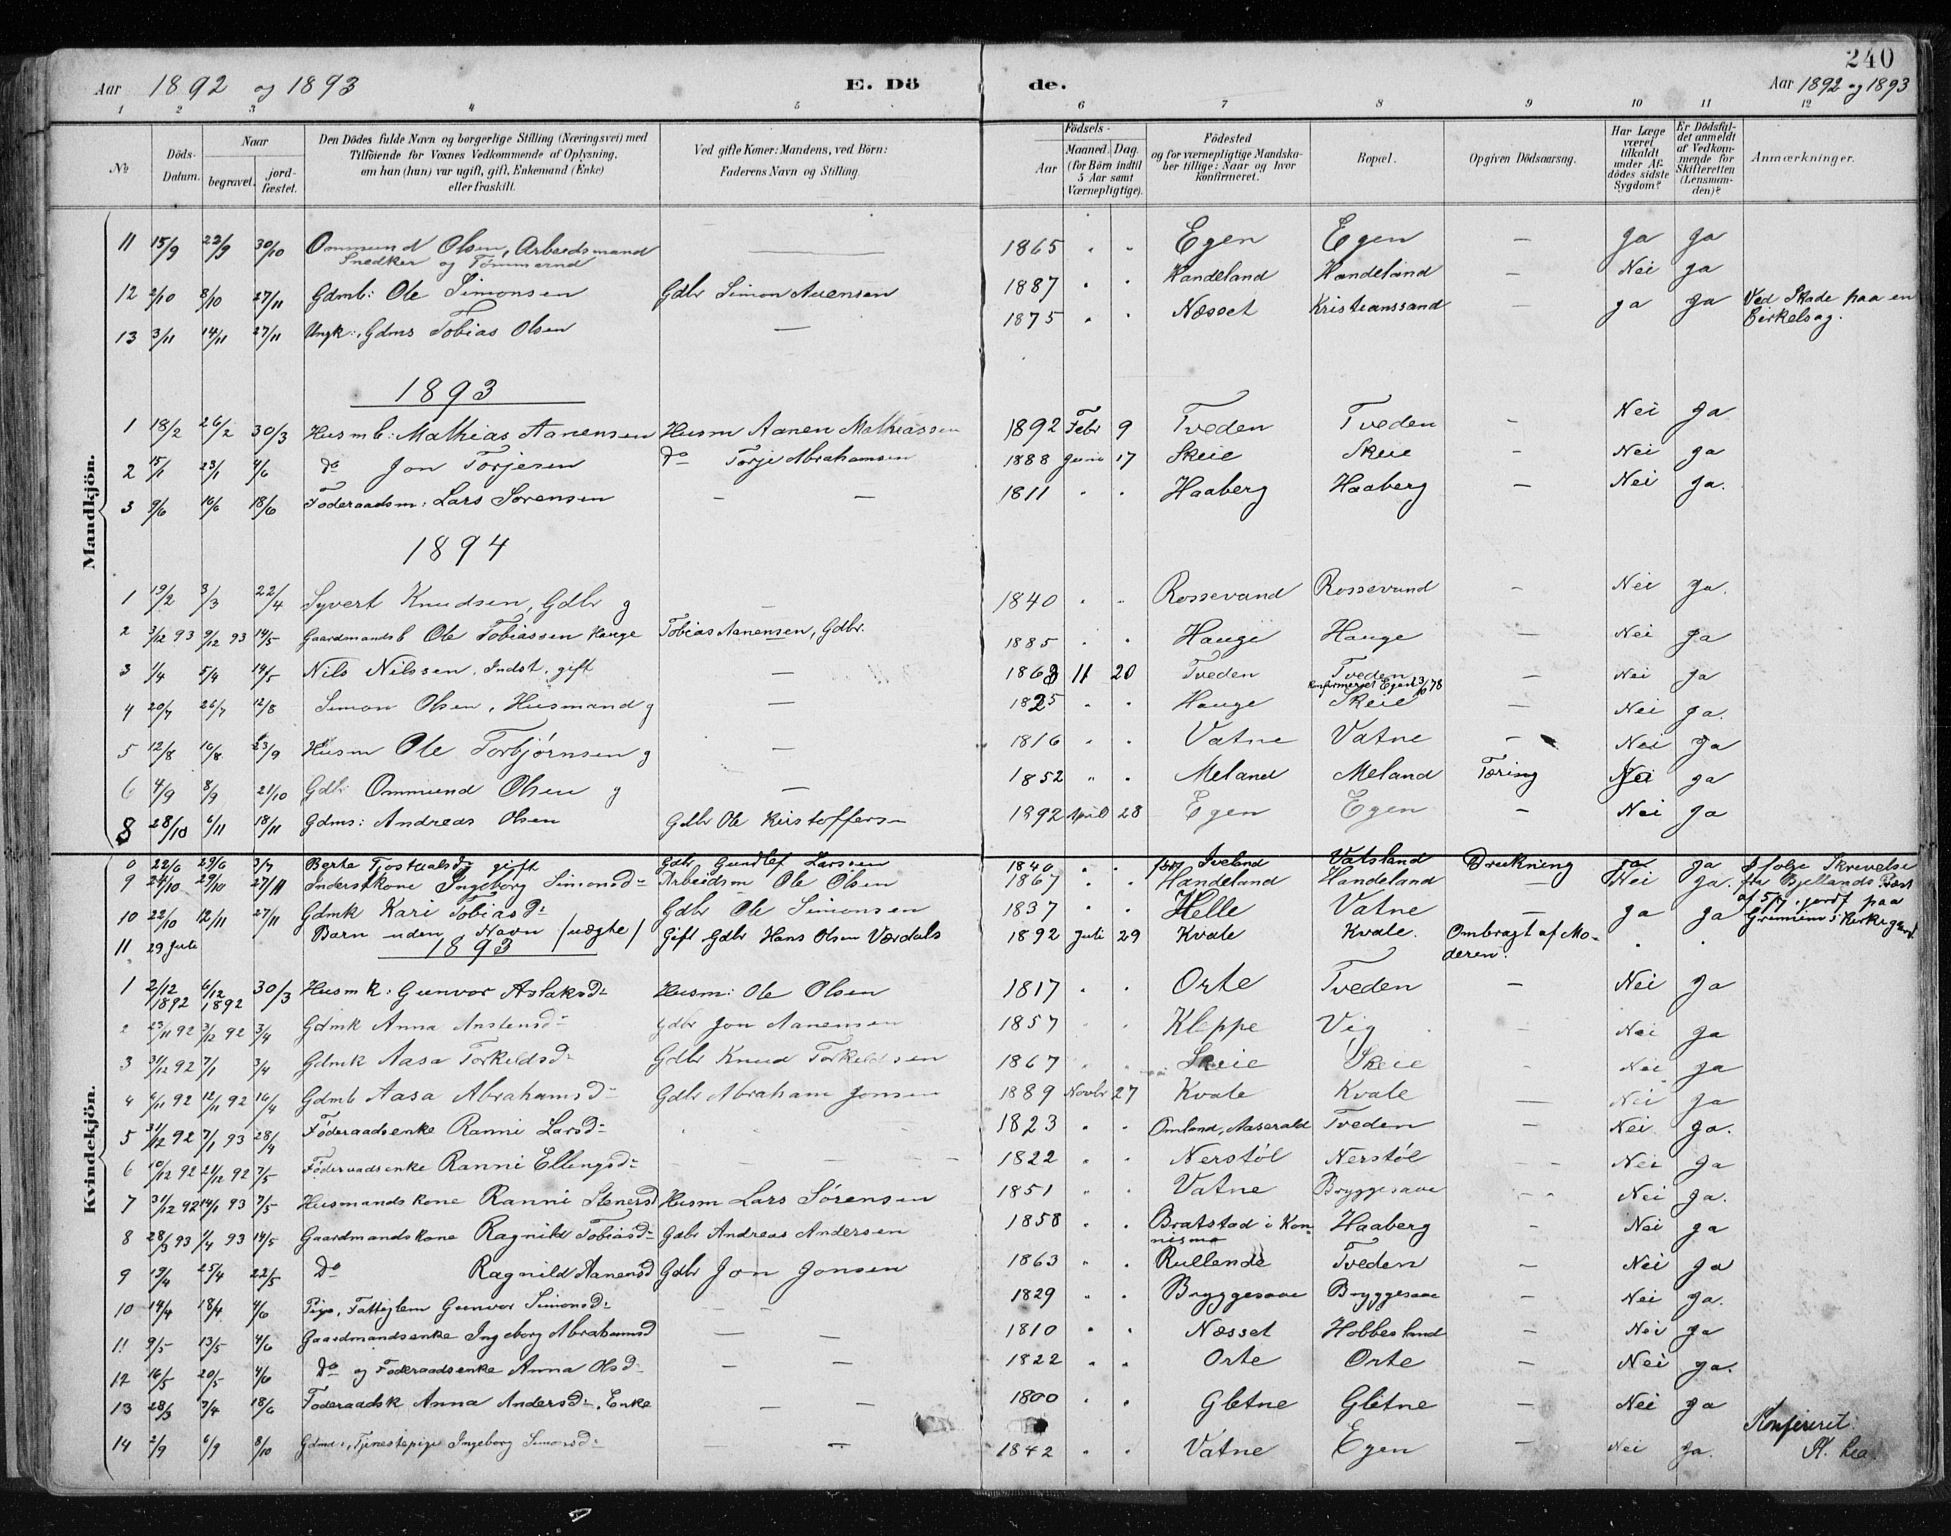 240
Aar 1892 og 1893 E. Dö de. Aar 1892 og 1893
1 2 3 4 5 6 7 8 9 10 11 12
№ Döds-Datum. Naar begravet. jord-fæstet. Den Dödes fulde Navn og borgerlige Stilling (Næringsvei) med Tilföiende for Voxnes Vedkommende af Oplysning, om han (hun) var ugift, gift, Enkemand (Enke) eller fraskilt. Ved gifte Koner: Mandens, ved Börn: Faderens Navn og Stilling. Födsels- Aar Maaned. Dag. (for Börn indtil 5 Aar samt Værnepligtige). Födested og for værnepligtige Mandska-ber tillige: Naar og hvor konfirmeret. Bopæl. Opgiven Dödsaarsag. Har Læge været tilkaldt under Af-dödes sidste Sygdom? Er Dödsfal-det anmeldt af Vedkom-mende for Skifteretten (Lensman-den)? Anmærkninger.
Mandkjön.
11 15/9 22/9 30/10 Ommund Olsen, Arbeidsmand — 1865 " " Egen Egen — ja ja
Snedker og Tømmermd
12 2/10 8/10 27/11 Gdmb: Ole Simonsen Gdbr Simon Auensen 1887 " " Handeland Handeland — Nei ja
13 3/11 14/11 27/11 Ungk:, Gdms Tobias Olsen — 1875 " " Næsset Kristianssand — ja ja Ved Skade paa en Cirkelsag.
1893
1 18/2 26/2 30/3 Husmb: Mathias Aanensen Husm Aanen Mathiassen 1892 Febr 9 Tveden Tveden — Nei ja
2 15/1 23/1 4/6 Do Jon Torjesen Do Torje Abrahamsen 1888 Juni 17 Skeie Skeie — Nei ja
3 9/6 16/6 18/6 Föderaadsm: Lars Sorensen — — 1811 " " Haaberg Haaberg — Nei ja.
1894
1 19/2 3/3 22/4 Syvert Knudsen, Gdbr g — 1840 " " Rossevand Rossevand — Nei ja.
2 3/12 93 9/12 93 14/5 Gaardmandsb Ole Tobiassen Hauge Tobias Aanensen, Gdbr. 1885 " " Hauge Hauge — Nei ja
3 1/4 5/4 14/5 Nils Nilssen, Indst. gift — 1863 11 20 Tveden Tveden — Nei ja
Konfirmeret Egen 13/10 78
4 20/7 26/7 12/8 Simon Olsen, Husmand g — 1825 " " Hauge Skeie — Nei ja.
5 12/8 16/8 23/9 Husm Ole Torbjørnsen g — 1816 " " Vatne Vatne — Nei ja
6 4/9 8/9 21/10 Gdbr Ommund Olsen g — 1852 " " Meland Meland Tæring Nei ja
8 28/10 6/11 18/11 Gdms: Andreas Olsen Gdbr Ole Kristoffersn 1892 April 28 Egen Egen — Nei ja
Kvindekjön.
0 22/6 29/6 3/7 Berte Tjostualsdr gift Gdbr Gundlef Larssen 1840 " " Iveland Vatsland Drukning ja ja Ifølge Skrevelse
9 24/10 29/10 27/11 Inderstkone Ingeborg Simonsdr Arbeidsm Ole Olsen 1867 " " Handeland Handeland — Nei ja. fra Bjellands Præst
10 22/10 12/11 27/11 Gdmk Kari Tobiasdr Gdbr Ole Simonsen 1837 " " Helle Vatne — ja ja
11 29 Juli Barn uden Navn (uægte) Gift Gdbr Hans Olsen Værdals 1892 Juli 29 Kvale Kvale. Ombragt af Mo-deren. " "
1893
1 2/12 1892 6/12 1892 30/3 Husmk: Gunvor Aslaksdr Husm: Ole Olsen 1817 " " Orte Tveden — Nei ja
2 23/11 92 3/12 92 3/4 Gdmk Anna Anstensdr Gdbr Jon Aanensen 1857 " " Kleppe Vig — Nei ja
3 31/12 92 7/1 3/4 Gdmk Aasa Torkildsdr Gdbr Knud Torkeldsen 1867 " " Skeie Skeie — Nei ja
4 6/11 92 12/11 92 16/4 Gdmb Aasa Abrahamsdr Gdbr Abraham Jonsen 1889 Novbr 27 Kvale Kvale — Nei ja
5 31/12 92 7/1 93 28/4 Föderaadsenke Ranni Larsdr 1823 " " Omland, Aaserald Tveden — Nei ja.
6 10/12 92 21/12 92 7/5 Föderaadsenke Ranni Ellingsdr — — 1822 " " Nerstöl Nerstöl — Nei ja
7 31/12 92 14/1 93 7/5 Husmandskone Ranni Stenersd Husm Lars Sörensen 1851 " " Vatne Bryggesaae — Nei ja.
8 28/3 93 7/4 93 14/5 Gaardmandskone Ragnild Tobiasdr Gdbr Andreas Andersen 1858 " " Bratstad i Kon-nismo Haaberg — Nei ja
9 19/4 25/4 22/5 Do Ragnild Aanensd Gdbr Jon Jonsen 1863 " " Rullende Tveden — Nei ja
10 14/4 18/4 4/6 Pige, Fattiglem Gunvor Simonsdr 1829 " " Bryggesaae Bryggesaae — Nei ja.
11 9/5 13/5 4/6 Gaardmandsenke Ingeborg Abrahamsd — — 1810 " " Næsset Hobbesland — Nei ja
12 16/5 20/5 4/6 Do og Föderaadsenke Anna Olsdr — — 1822 " " Orte Orte — Nei ja.
13 28/3 7/4 18/6 Föderaadsk Anna Andersdr, Enke — — 1800 " " Gletne Gletne — Nei ja
14 2/9 6/9 8/10 Gdmd:, Tjenestepige Ingeborg Simonsdr — — 1842 " " Vatne Egen — Nei ja. Konfereret